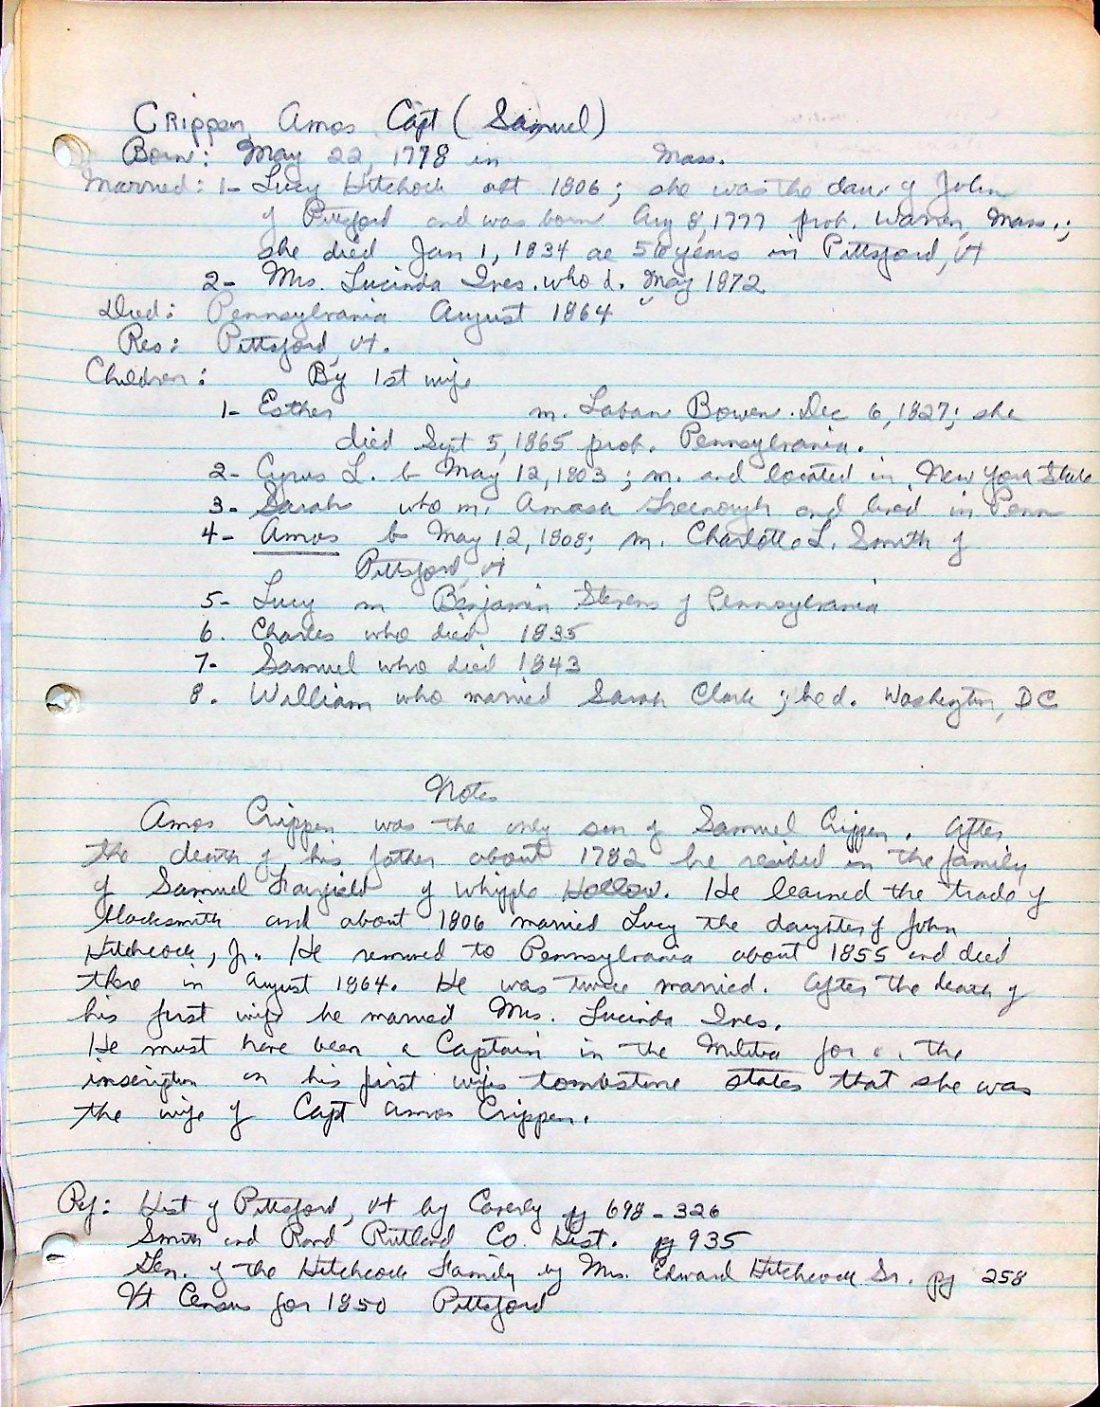 Crippen, Amos Capt (Samuel)
Born: May 22, 1778 in Mass.
Married: 1- Lucy Hitchock abt 1806; she was the dau. of John
of Pittsford and was born Aug 8, 1777 prob. Warren, Mass.;
she died Jan 1, 1834 ae 56 years in Pittsford, Vt
2- Mrs. Lucinda Ives. who d. May 1872
Died: Pennsylvania August 1864
Res: Pittsford, Vt.
Children: By 1st wife
1- Esther m. Laban Bowen. Dec 6, 1827; she
died Sept 5, 1865 prob. Pennsylvania.
2- Cyrus L. b May 12, 1803; m. and located in New York State
3- Sarah who m. Amasa Greenough and lived in Penn
4- Amos b May 12, 1808; m. Charlotte L. Smith of
Pittsford, Vt
5- Lucy m Benjamin Stevens of Pennsylvania
6. Charles who died 1835
7- Samuel who died 1843
8. William who married Sarah Clark; he d. Washington, DC
Notes
Amos Crippen was the only son of Samuel Crippen. After
the death of his father about 1782 he resided in the family
of Samuel Fairfield of Whipple Hollow. He learned the trade of
blacksmith and about 1806 married Lucy the daughter of John
Hitchcock, Jr. He removed to Pennsylvania about 1855 and died
there in August 1864. He was twice married. After the death of
his first wife he married Mrs. Lucinda Ives.
He must have been a Captain in the Militia for the
inscription on his first wifes tombstone states that she was
the wife of Capt Amos Crippen.
Ref: Hist of Pittsford, Vt by Caverly pg 698-326
Smith and Rand Rutland Co. Hist. pg 935
Gen. of the Hitchcock Family by Mrs. Edward Hitchcock Sr. pg 258
Vt Census for 1850 Pittsford